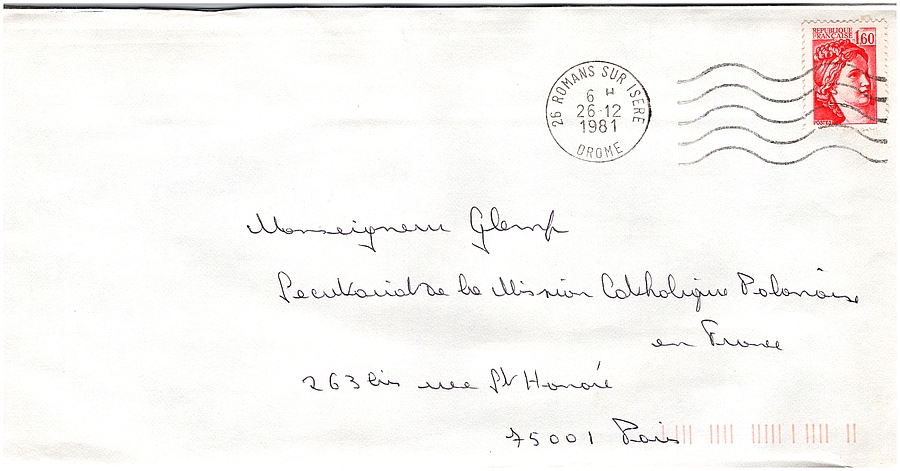 REPUBLIQUE
FRANÇAISE 1,60
POSTES
26 ROMANS SUR ISERE
6 H
26-12
1981
DROME
Monseigneur Glemp
Secrétariat de la Mission Catholique Polonaise
en France
263 bis rue St Honoré
75001 Paris